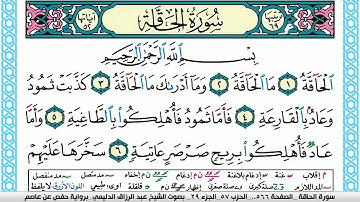 ترتيبها ٦٩
سُورَةُ الحَاقَّةِ
آياتها ٥٢
بِسْمِ اللَّهِ الرَّحْمَٰنِ الرَّحِيمِ
الْحَاقَّةُ ١ مَا الْحَاقَّةُ ٢ وَمَا أَدْرَاكَ مَا الْحَاقَّةُ ٣ كَذَّبَتْ ثَمُودُ
وَعَادٌ بِالْقَارِعَةِ ٤ فَأَمَّا ثَمُودُ فَأُهْلِكُوا بِالطَّاغِيَةِ ٥ وَأَمَّا
عَادٌ فَأُهْلِكُوا بِرِيحٍ صَرْصَرٍ عَاتِيَةٍ ٦ سَخَّرَهَا عَلَيْهِمْ
سورة الحاقة الصفحة ٥٦٦.. الحزب ٥٧ الجزء ٢٩ بصوت الشيخ عبد الرزاق الدليمي برواية حفص عن عاصم